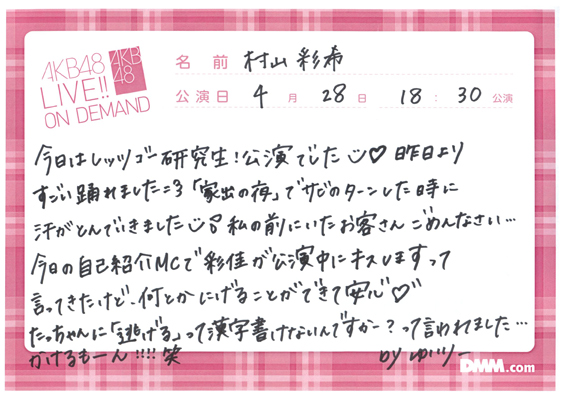 AKB48
LIVE!!
ON DEMAND
AKB
48
名前 村山 彩希
公演日 4月 28日 18:30公演
今日はレッツゴー研究生!公演でした♡昨日より
すごい踊れましたこ3「家出の夜」でサビのターンした時に
汗がとんでいきました 私の前にいたお客さんごめんなさい…
今日の自己紹介MCで彩佳が公演中にキスしますって
言ってきたけど、何とかにげることができて安心♡♡
たっちゃんに「逃げる」って漢字書けないんですかー?って言われました…
かけるもーん!!!!笑
by ゆいりー
DMM.com